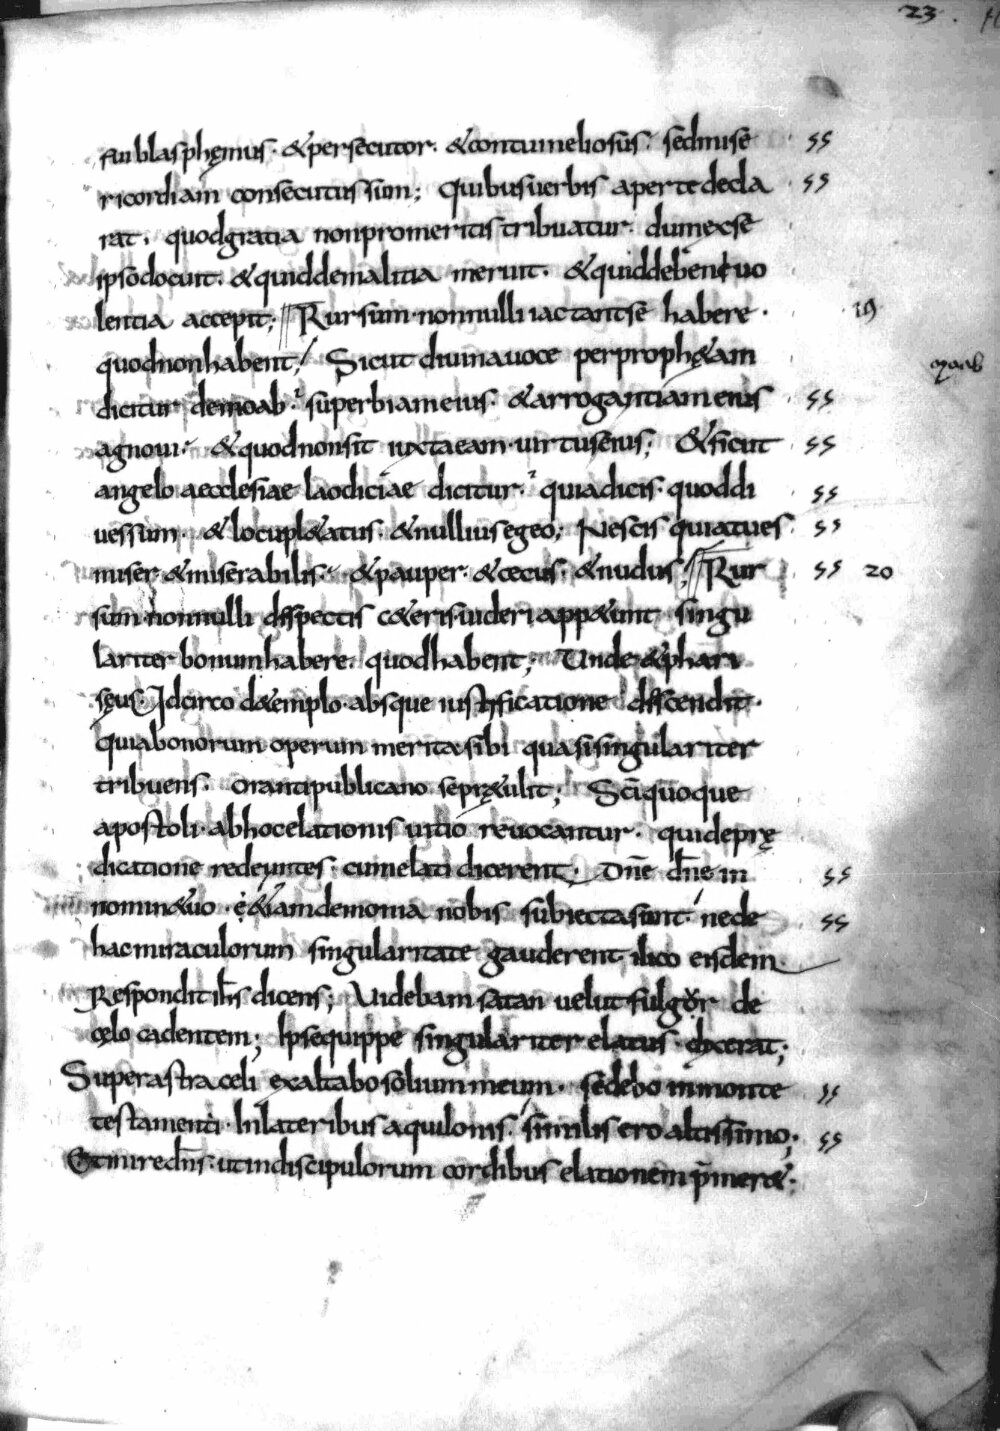 23.
fui blasphęmus· & persecutor· & contumeliosus· sed mise ss
ricordiam consecutus sum; Quibus uerbis aperte decla ss
rat· quod gratia non pro meritis tribuatur· dum ex se
ipso docuit· & quid de malitia meruit· & quid de beneuo
lentia accepit; Rursum nonnulli iactant se habere· 19
quod non habent; Sicut diuina uoce per proph&am
dicitur de moab· superbiam eius & arrogantiam eius ss
agnoui· & quod non sit iuxta eam uirtus eius; & sicut ss
angelo aecclesiae laodiciae dicitur· quia dicis quod di ss
ues sum· & locupl&atus· & nullius egeo; Nescis quia tu es ss
miser & miserabilis· & pauper· & cęcus· & nudus; Rur ss 20
sum nonnulli despectis c&eris uideri app&unt singu
lariter bonum habere quod habent; Unde & phari
sęus· Idcirco de templo absque iustificatione descendit·
quia bonorum operum merita sibi quasi singulariter
tribuens· oranti publicano se pr&ulit; Sc̄i quoque
apostoli· ab hoc elationis uitio reuocantur· qui de prę
dicatione redeuntes· cum elati dicerent; Dn̄e dn̄e in ss
nomine tuo &iam demonia nobis subiecta sunt· ne de ss
hac miraculorum singularitate gauderent ilico eisdem
Respondit ih̄s dicens; Uidebam satan uelut fulgor de
cęlo cadentem; Ipse quippe singulariter elatus dixerat;
Super astra celi exaltabo solium meum· sedebo in monte ss
testamenti· In lateribus aquilonis· similis ero altissimo; ss
Et mire dn̄s· ut in discipulorum cordibus elationem p̄mer&·